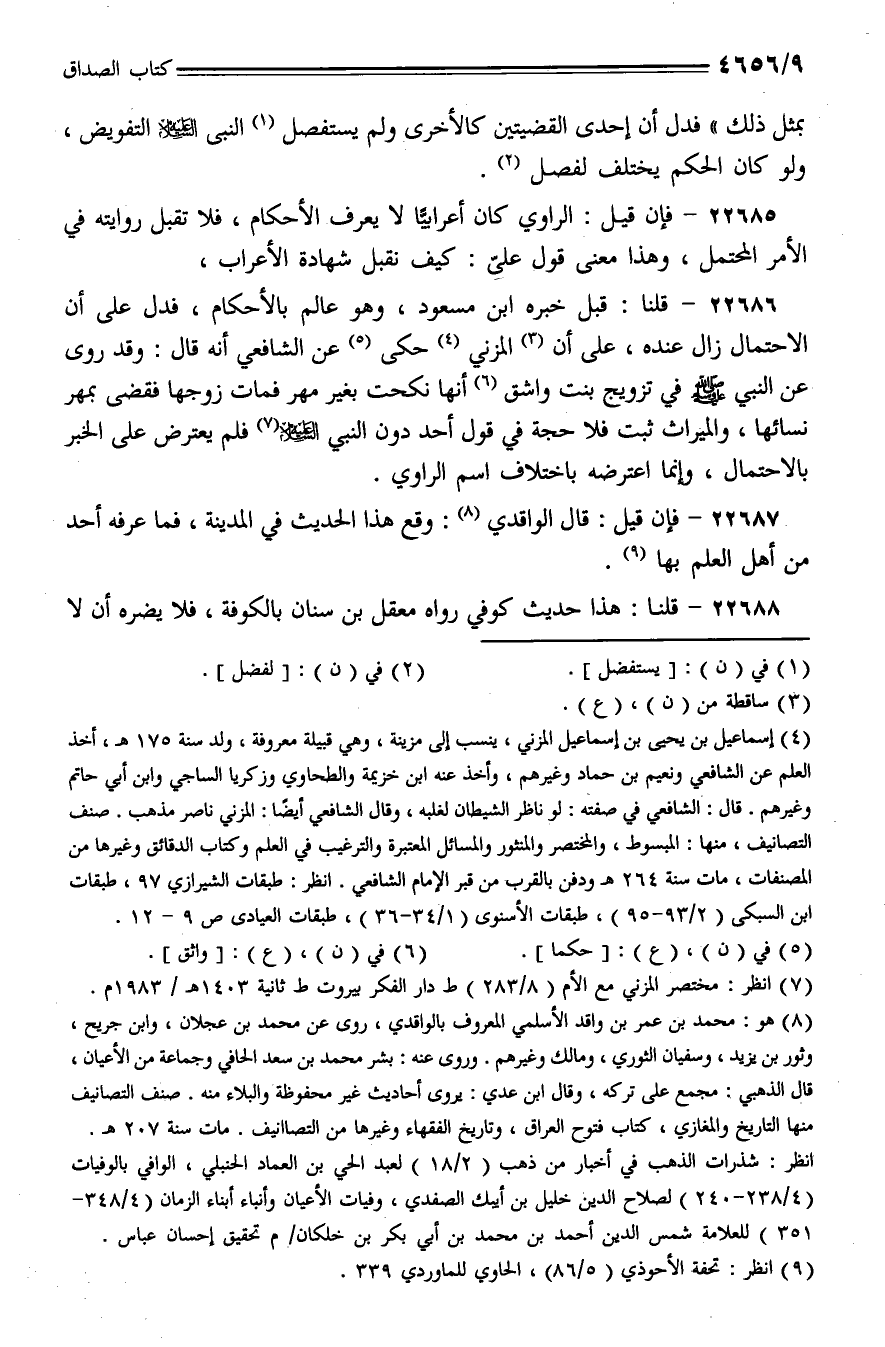 ٤٦٥٦/٩ كتاب الصداق
بمثل ذلك » فدل أن إحدى القضيتين كالأخرى ولم يستفصل (١) النبى عليه السلام التفويض ،
ولو كان الحكم يختلف لفصل (٢) .
٢٢٦٨٥ – فإن قيل : الراوي كان أعرابيًّا لا يعرف الأحكام ، فلا تقبل روايته في
الأمر المحتمل ، وهذا معنى قول عليّ : كيف نقبل شهادة الأعراب ،
٢٢٦٨٦ – قلنا : قبل خبره ابن مسعود ، وهو عالم بالأحكام ، فدل على أن
الاحتمال زال عنده ، على أن (٣) المزني (٤) حكى (٥) عن الشافعي أنه قال : وقد روى
عن النبي ﷺ في تزويج بنت واشق (٦) أنها نكحت بغير مهر فمات زوجها فقضى بمهر
نسائها ، والميراث ثبت فلا حجة في قول أحد دون النبي عليه السلام(٧) فلم يعترض على الخبر
بالاحتمال ، وإنما اعترضه باختلاف اسم الراوي .
٢٢٦٨٧ – فإن قيل : قال الواقدي (٨) : وقع هذا الحديث في المدينة ، فما عرفه أحد
من أهل العلم بها (٩) .
٢٢٦٨٨ – قلنا : هذا حديث كوفي رواه معقل بن سنان بالكوفة ، فلا يضره أن لا
(١) في ( ن ) : [ يستفضل ] . (٢) في ( ن ) : [ لفضل ] .
(٣) ساقطة من ( ن ) ، ( ع ) .
(٤) إسماعيل بن يحيى بن إسماعيل المزني ، ينسب إلى مزينة ، وهي قبيلة معروفة ، ولد سنة ١٧٥ هـ ، أخذ
العلم عن الشافعي ونعيم بن حماد وغيرهم ، وأخذ عنه ابن خزيمة والطحاوي وزكريا الساجي وابن أبي حاتم
وغيرهم . قال : الشافعي في صفته : لو ناظر الشيطان لغلبه ، وقال الشافعي أيضًا : المزني ناصر مذهب . صنف
التصانيف ، منها : المبسوط ، والمختصر والمنثور والمسائل المعتبرة والترغيب في العلم وكتاب الدقائق وغيرها من
المصنفات ، مات سنة ٢٦٤ هـ ودفن بالقرب من قبر الإمام الشافعي . انظر : طبقات الشيرازي ٩٧ ، طبقات
ابن السبكى ( ٩٣/٢–٩٥ ) ، طبقات الأسنوى ( ٣٤/١–٣٦ ) ، طبقات العيادى ص ٩ – ١٢ .
(٥) في ( ن ) ، ( ع ) : [ حكما ] . (٦) في ( ن ) ، ( ع ) : [ واثق ] .
(٧) انظر : مختصر المزني مع الأم ( ٢٨٣/٨ ) ط دار الفكر بيروت ط ثانية ١٤٠٣هـ / ١٩٨٣م .
(٨) هو : محمد بن عمر بن واقد الأسلمي المعروف بالواقدي ، روى عن محمد بن عجلان ، وابن جريح ،
وثور بن يزيد ، وسفيان الثوري ، ومالك وغيرهم . وروى عنه : بشر محمد بن سعد الحافي وجماعة من الأعيان ،
قال الذهبي : مجمع على تركه ، وقال ابن عدي : يروى أحاديث غير محفوظة والبلاء منه . صنف التصانيف
منها التاريخ والمغازي ، كتاب فتوح العراق ، وتاريخ الفقهاء وغيرها من التصاانيف . مات سنة ٢٠٧ هـ .
انظر : شذرات الذهب في أخبار من ذهب ( ١٨/٢ ) لعبد الحي بن العماد الحنبلي ، الوافي بالوفيات
( ٢٣٨/٤–٢٤٠ ) لصلاح الدين خليل بن أيبك الصفدي ، وفيات الأعيان وأنباء أبناء الزمان ( ٣٤٨/٤–
٣٥١ ) للعلامة شمس الدين أحمد بن محمد بن أبي بكر بن خلكان/ م تحقيق إحسان عباس .
(٩) انظر : تحفة الأحوذي ( ٨٦/٥) ، الحاوي للماوردي ٣٣٩ .